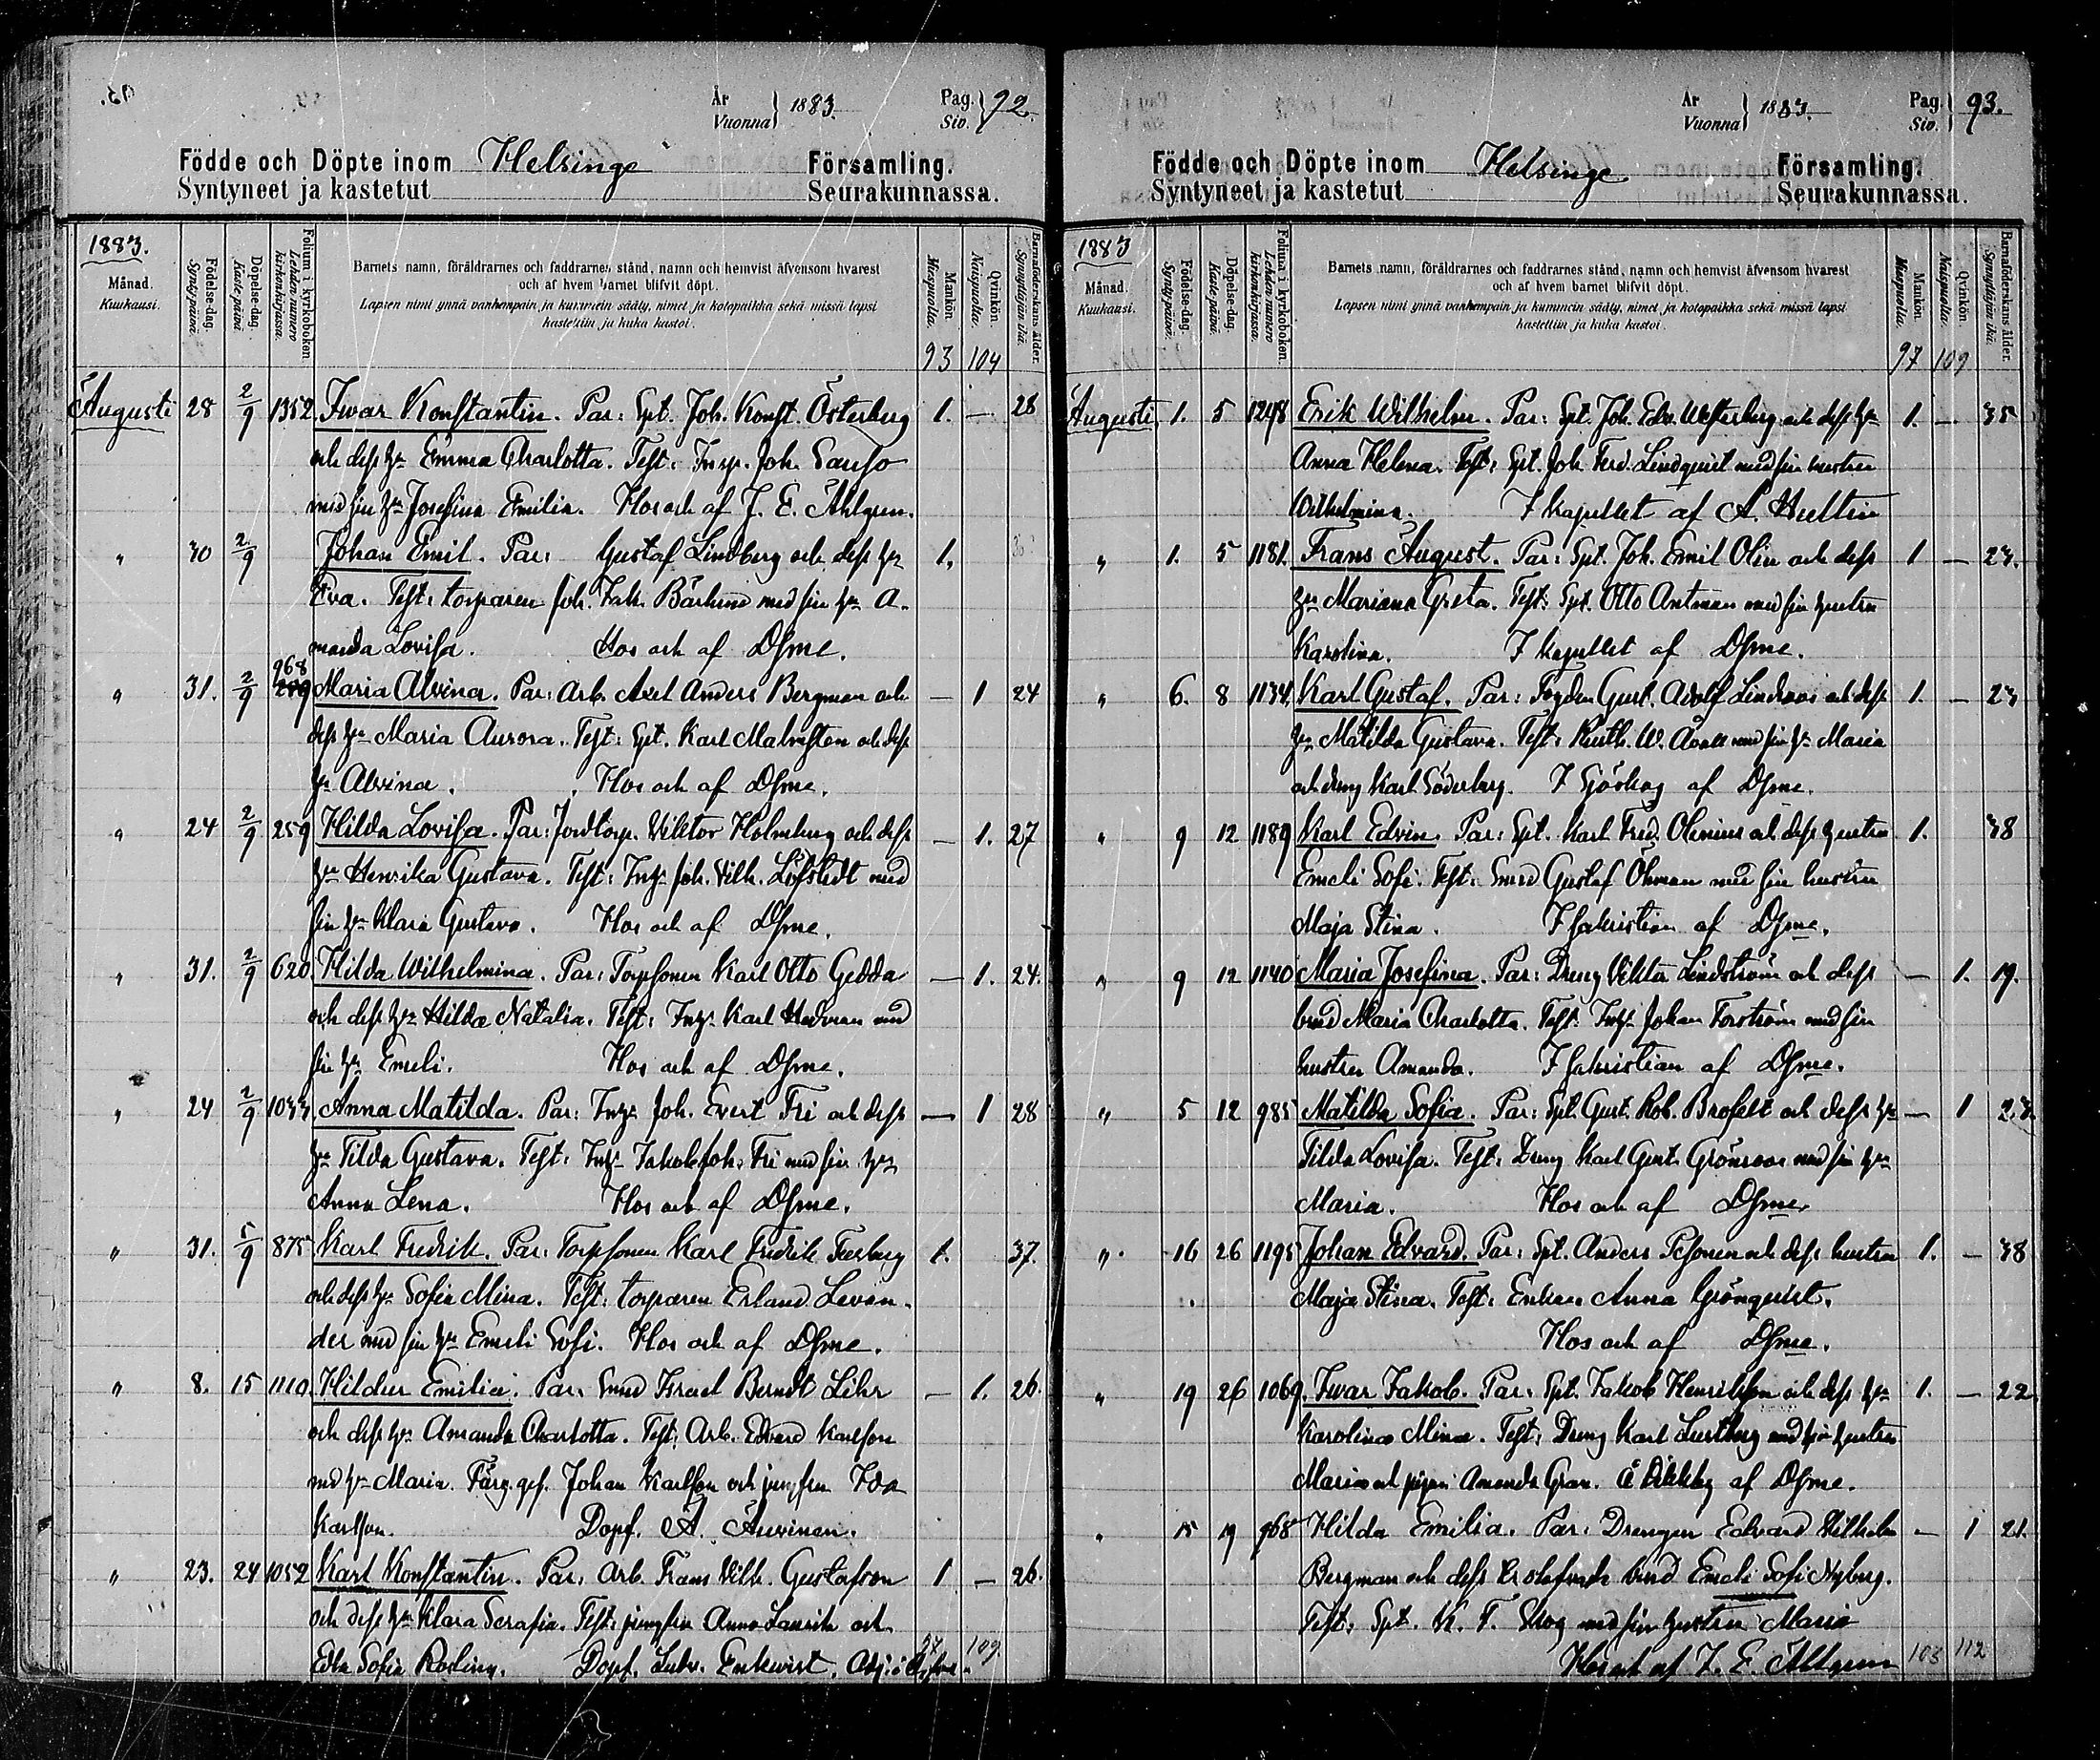 År Vuonna 1883. Pag. Siv. 92.
Födde och Döpte inom Helsinge Församling.
Syntyneet ja kastetut Seurakunnassa.
1883.
Månad. Kuukausi.
Födelse-dag. Syntypäivä.
Döpelse-dag. Kaste-päivä.
Folium i kyrkoboken. Lehden numero kirkonkirjassa.
Barnets namn, föräldrarnes och faddrarnes stånd, namn och hemvist äfvensom hvarest
och af hvem barnet blifvit döpt.
Lapsen nimi ynnä vanhempain ja kummein sääty, nimet ja kotopaikka sekä missä lapsi
kastettiin ja kuka kastoi.
Mankön. Miespuolia.
Qvinkön. Naispuolia.
Barnaföderskans ålder. Synnyttäjän ikä.
93 104
Augusti 28 2/9 1352. Ivar Konstantin. Par: Spt. Joh. Konst. Österberg 1. — 28
och dess hu Emma Charlotta. Test: Insp. Joh.
med sin hu Josefina Emilia. Hos och af J. E. Ahlgren.
" 30 2/9 Johan Emil. Par: Gustaf Lindberg och dess hu 1.
Eva. Test: torparen Joh. Jak. med sin hu A-
manda Lovisa. Hos och af Dsme.
" 31. 2/9 968 Maria Alvina. Par: Arb. Axel Anders Bergman och — 1 24
dess hu Maria Aurora. Test: Spt. Karl Malmsten och dess
hu Alvina. Hos och af Dsme.
" 24 2/9 259 Hilda Lovisa. Par: Jordtorp. Viktor Holmberg och dess — 1. 27
hu Henrika Gustava. Test: Inhs. Joh. Vilh. Löfstedt med
sin hu Maria Gustava. Hos och af Dsme.
" 31. 2/9 620. Hilda Wilhelmina. Par: Torpsonen Karl Otto Gedda — 1. 24.
och dess hu Hilda Natalia. Test: Inhs. Karl med
sin hu Emeli. Hos och af Dsme.
" 24 2/9 1033 Anna Matilda. Par: Inhs. Joh. Evert Fri och dess — 1 28
hu Tilda Gustava. Test: Inhs. Jakob Joh. Fri med sin hu
Anna Lena. Hos och af Dsme.
" 31. 5/9 875 Karl Fredrik. Par: Torpsonen Karl Fredrik 1. 37.
och dess hu Sofia Mina. Test: torparen Erland Levan-
der med sin hu Emeli Sofi. Hos och af Dsme.
" 8. 15 1110. Hildur Emilia. Par: Smed Israel Berndt Lihr — 1. 26.
och dess hu Amanda Charlotta. Test: Arb. Edvard Karlson
med hu Maria. Färg.ges. Johan Karlson och jungfru Ida
Karlson. Döpt. A. Auvinen.
" 23. 24 1052 Karl Konstantin. Par: Arb. Frans Vilh. Gustafson 1 — 26.
och dess hu Klara Serafia. Test: jungfru Anna och
Edla Sofia Rosling. Döpt. Enkvist. Adj.
97 109.
År Vuonna 1883. Pag. Siv. 93.
Födde och Döpte inom Helsinge Församling.
Syntyneet ja kastetut Seurakunnassa.
1883
Månad. Kuukausi.
Födelse-dag. Syntypäivä.
Döpelse-dag. Kaste-päivä.
Folium i kyrkoboken. Lehden numero kirkonkirjassa.
Barnets namn, föräldrarnes och faddrarnes stånd, namn och hemvist äfvensom hvarest
och af hvem barnet blifvit döpt.
Lapsen nimi ynnä vanhempain ja kummein sääty, nimet ja kotopaikka sekä missä lapsi
kastettiin ja kuka kastoi.
Mankön. Miespuolia.
Qvinkön. Naispuolia.
Barnaföderskans ålder. Synnyttäjän ikä.
97 109
Augusti 1. 5 1248 Erik Wilhelm. Par: Spt. Joh. Edv. Westerberg och dess hu 1. — 35
Anna Helena. Test: Spt. Joh. Ferd. Lindquist med sin hustru
Wilhelmina. I kapellet af A. Hultin
" 1. 5 1181. Frans August. Par: Spt. Joh. Emil Olin och dess 1 — 23.
hu Mariana Greta. Test: Spt. Otto Antman med sin hustru
Karolina. I kapellet af Dsme.
" 6. 8 1134. Karl Gustaf. Par: Fogden Gust. Adolf Lindroos och dess 1. — 23
hu Matilda Gustava. Test: W. med sin hu Maria
och dreng Karl Söderberg. I Sjöskog af Dsme.
" 9 12 1189 Karl Edvin. Par: Spt. Karl Fred. Olenius och dess hustru 1. 38
Emeli Sofi. Test: Smed Gustaf Öhman med sin hustru
Maja Stina. I sakristian af Dsme.
" 9 12 1140 Maria Josefina. Par: Dreng Viktor Lindström och dess — 1. 19.
brud Maria Charlotta. Test: Inhs. Johan Forström med sin
hustru Amanda. I sakristian af Dsme.
" 5 12 985 Matilda Sofia. Par: Spt. Gust. Rob. Brofelt och dess hu — 1 23
Tilda Lovisa. Test: Dreng Karl Gust. Grönroos med sin hu
Maria. Hos och af Dsme.
" 16 26 1195 Johan Edvard. Par: Spt. Anders och dess hustru 1. — 38
Maja Stina. Test: Enkan Anna Grönqvist.
Hos och af Dsme.
" 19 26 1069. Ivar Jakob. Par: Spt. Jakob Henrikson och dess hu 1. — 22
Karolina Mina. Test: Dreng Karl med sin hustru
Maria och pigan Amanda Gran. Å Dickby af Dsme.
" 15 19 968 Hilda Emilia. Par: Drengen Edvard Vilhelm — 1 21.
Bergman och dess brud Emeli Sofi Nyberg.
Test: Spt. K. F. Skog med sin hustru Maria
Hos och af J. E. Ahlgren 103 112